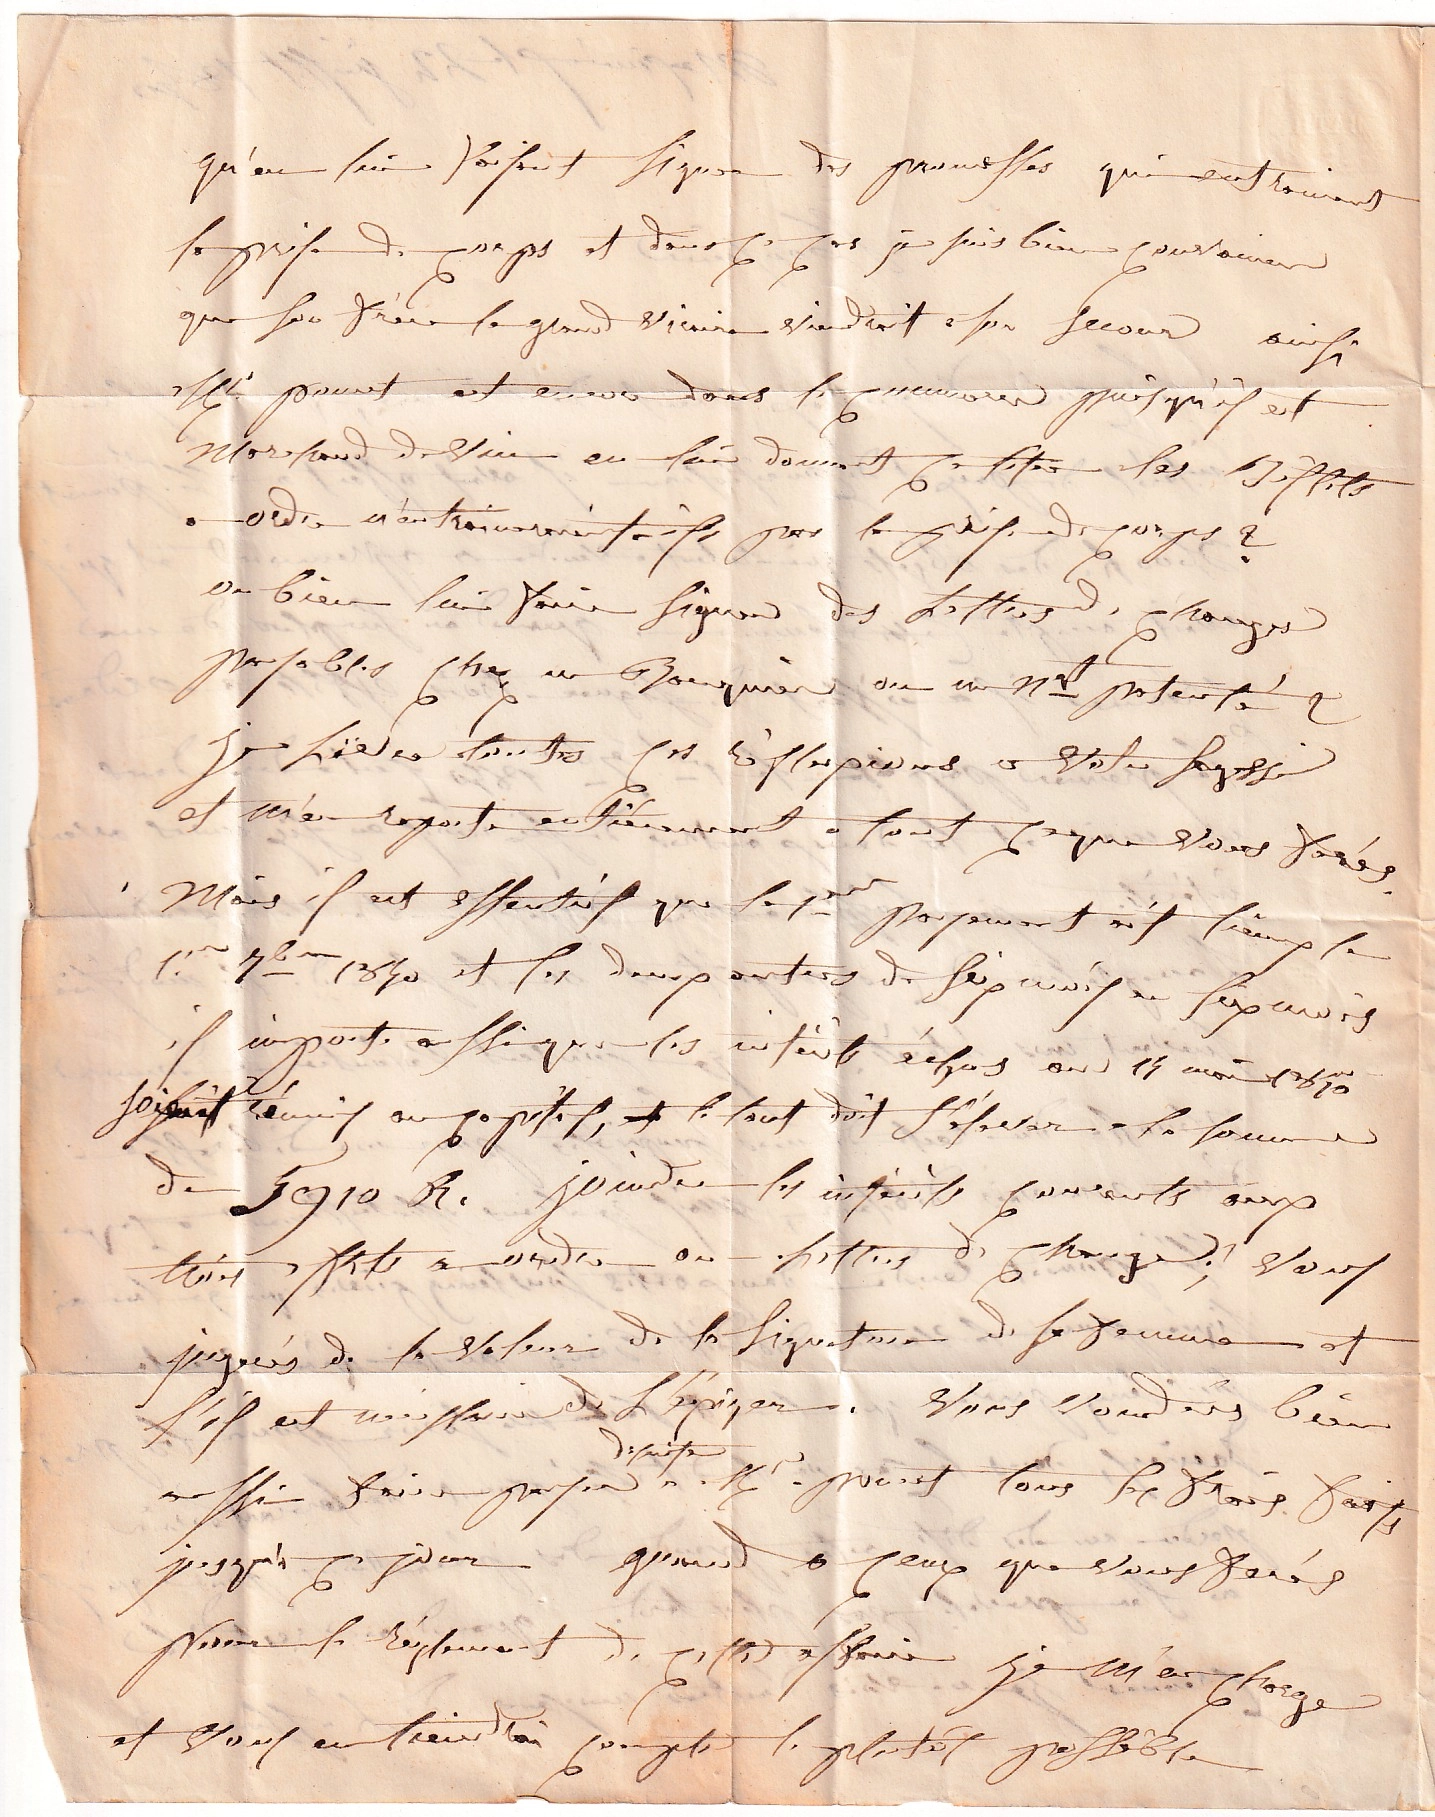 qu'en lui faisant signer des promesses qui entrainent
la prise de corps et dans ce cas je suis bien convaincu
que son frère le grand vicaire viendrait a son secour ainsi
Mr. pouret est encore dans le commerce puisqu'il est
Marchand de Vin en lui donnant à signer des Effets
a ordre n'entraineraient-ils pas la prise de corps ?
ou bien lui faire signer des Lettres de changes
payables chez un Banquier ou un Nt patenté ?
je livre toutes ces réflexions a votre sagesse
et m'en raporte entièrement a tout ce que vous ferés.
Mais il est essentiel que le 1er payement ait lieu le
1er 7bre 1840 et les deux autres de six mois en six mois
il importe aussi que les intérêts échus au 15 mai 1840
soient réunis au capital, et le tout doit s'élever a la somme
de 5910 R. joindre les intérêts courants aux
trois effets a ordre ou Lettres de change; Vous
jugerés de la valeur de la signature de sa femme et
s'il est nécessaire de L'éxiger. Vous voudrés bien
aussi faire payer de suite a Mr pouret tous les frais faits
jusqu'à ce jour quand a ceux que vous ferés
pour le réglement de cette affaire je m'en charge
et vous en tiendrai compte le plutôt possible